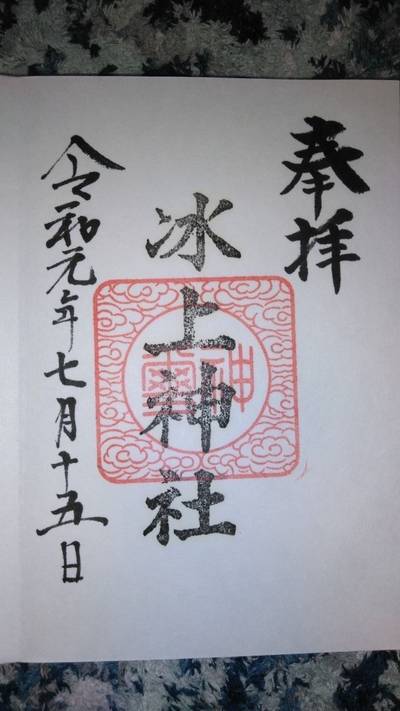 奉拝
氷上神社
令和元年七月十五日